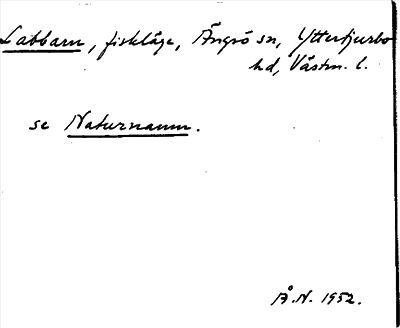 Labbarn, fiskläge, Ängsö sn, Yttertjurbo
hd, Västm. l.
se Naturnamn.
Å.N. 1952.